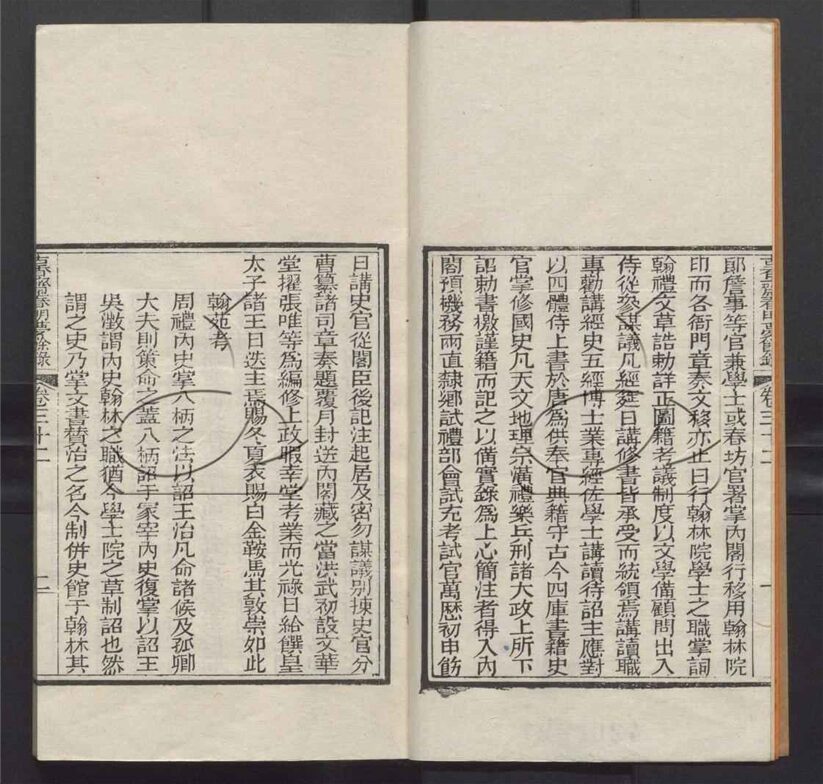 郞詹事等官兼學士或春坊官署掌內閣行移用翰林院
印而各衙門章奏文移亦止曰行翰林院學士之職掌詞
翰禮文草誥勅詳正圖籍考議制度以文學備顧問出入
侍從叅謀議凡經筵日講修書皆承受而統領焉講讀職
專勸講經史五經博士業專經佐學士講讀待詔主應對
以四體侍上書於唐爲供奉官典籍守古今四庫書籍史
官掌修國史凡天文地理宗潢禮樂兵刑諸大政上所下
詔勅書檄謹籍而記之以備實錄爲上心簡注者得入內
閣預機務兩直隸鄕試禮部會試充考試官萬歷初申飭
卷三十二
一
日講史官從閣臣後記注起居及密勿謀議別揀史官分
曹纂諸司章奏題覆月封送內閣藏之當洪武初設文華
堂擢張唯等爲編修上政暇幸堂考業而光祿日給饌皇
太子諸王日迭主焉賜冬夏衣賜白金鞍馬其敦崇如此
翰苑考
周禮內史掌八柄之法以詔王治凡命諸侯及孤卿
大夫則策命之蓋八柄詔于冢宰內史復掌以詔王
吳澂謂內史翰林之職猶今學士院之草制詔也然
謂之史乃掌文書贊治之名今制併史館于翰林其
春明夢餘錄
卷三十二
二